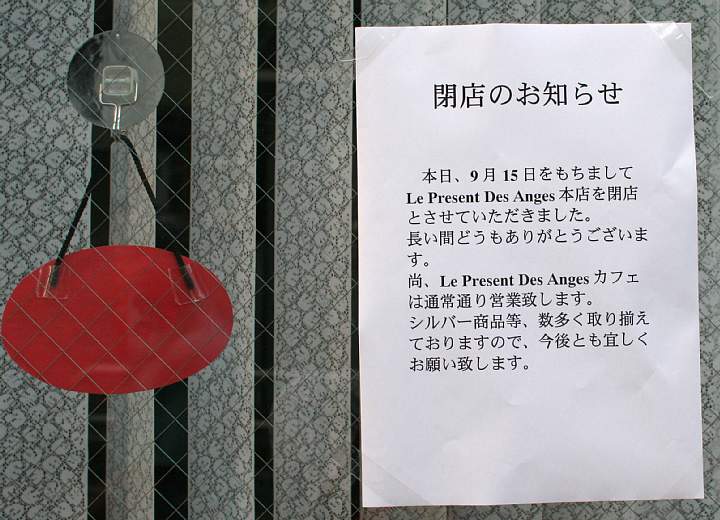 閉店のお知らせ
本日、9月15日をもちまして
Le Present Des Anges 本店を閉店
とさせていただきました。
長い間どうもありがとうございま
す。
尚、Le Present Des Anges カフェ
は通常通り営業致します。
シルバー商品等、数多く取り揃え
ておりますので、今後とも宜しく
お願い致します。